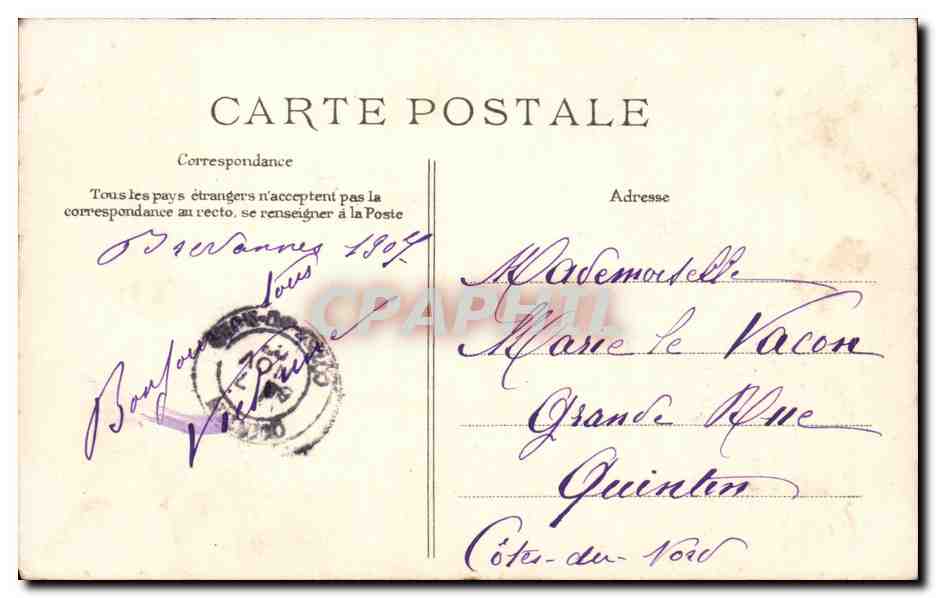 CARTE POSTALE
Correspondance
Tous les pays étrangers n'acceptent pas la
correspondance au recto, se renseigner à la Poste
Adresse
Brevannes 1907
Bonjour
Tous
CPAPHIL
Mademoiselle
Marie le Vacon
Grande Rue
Quintin
Côtes-du-Nord